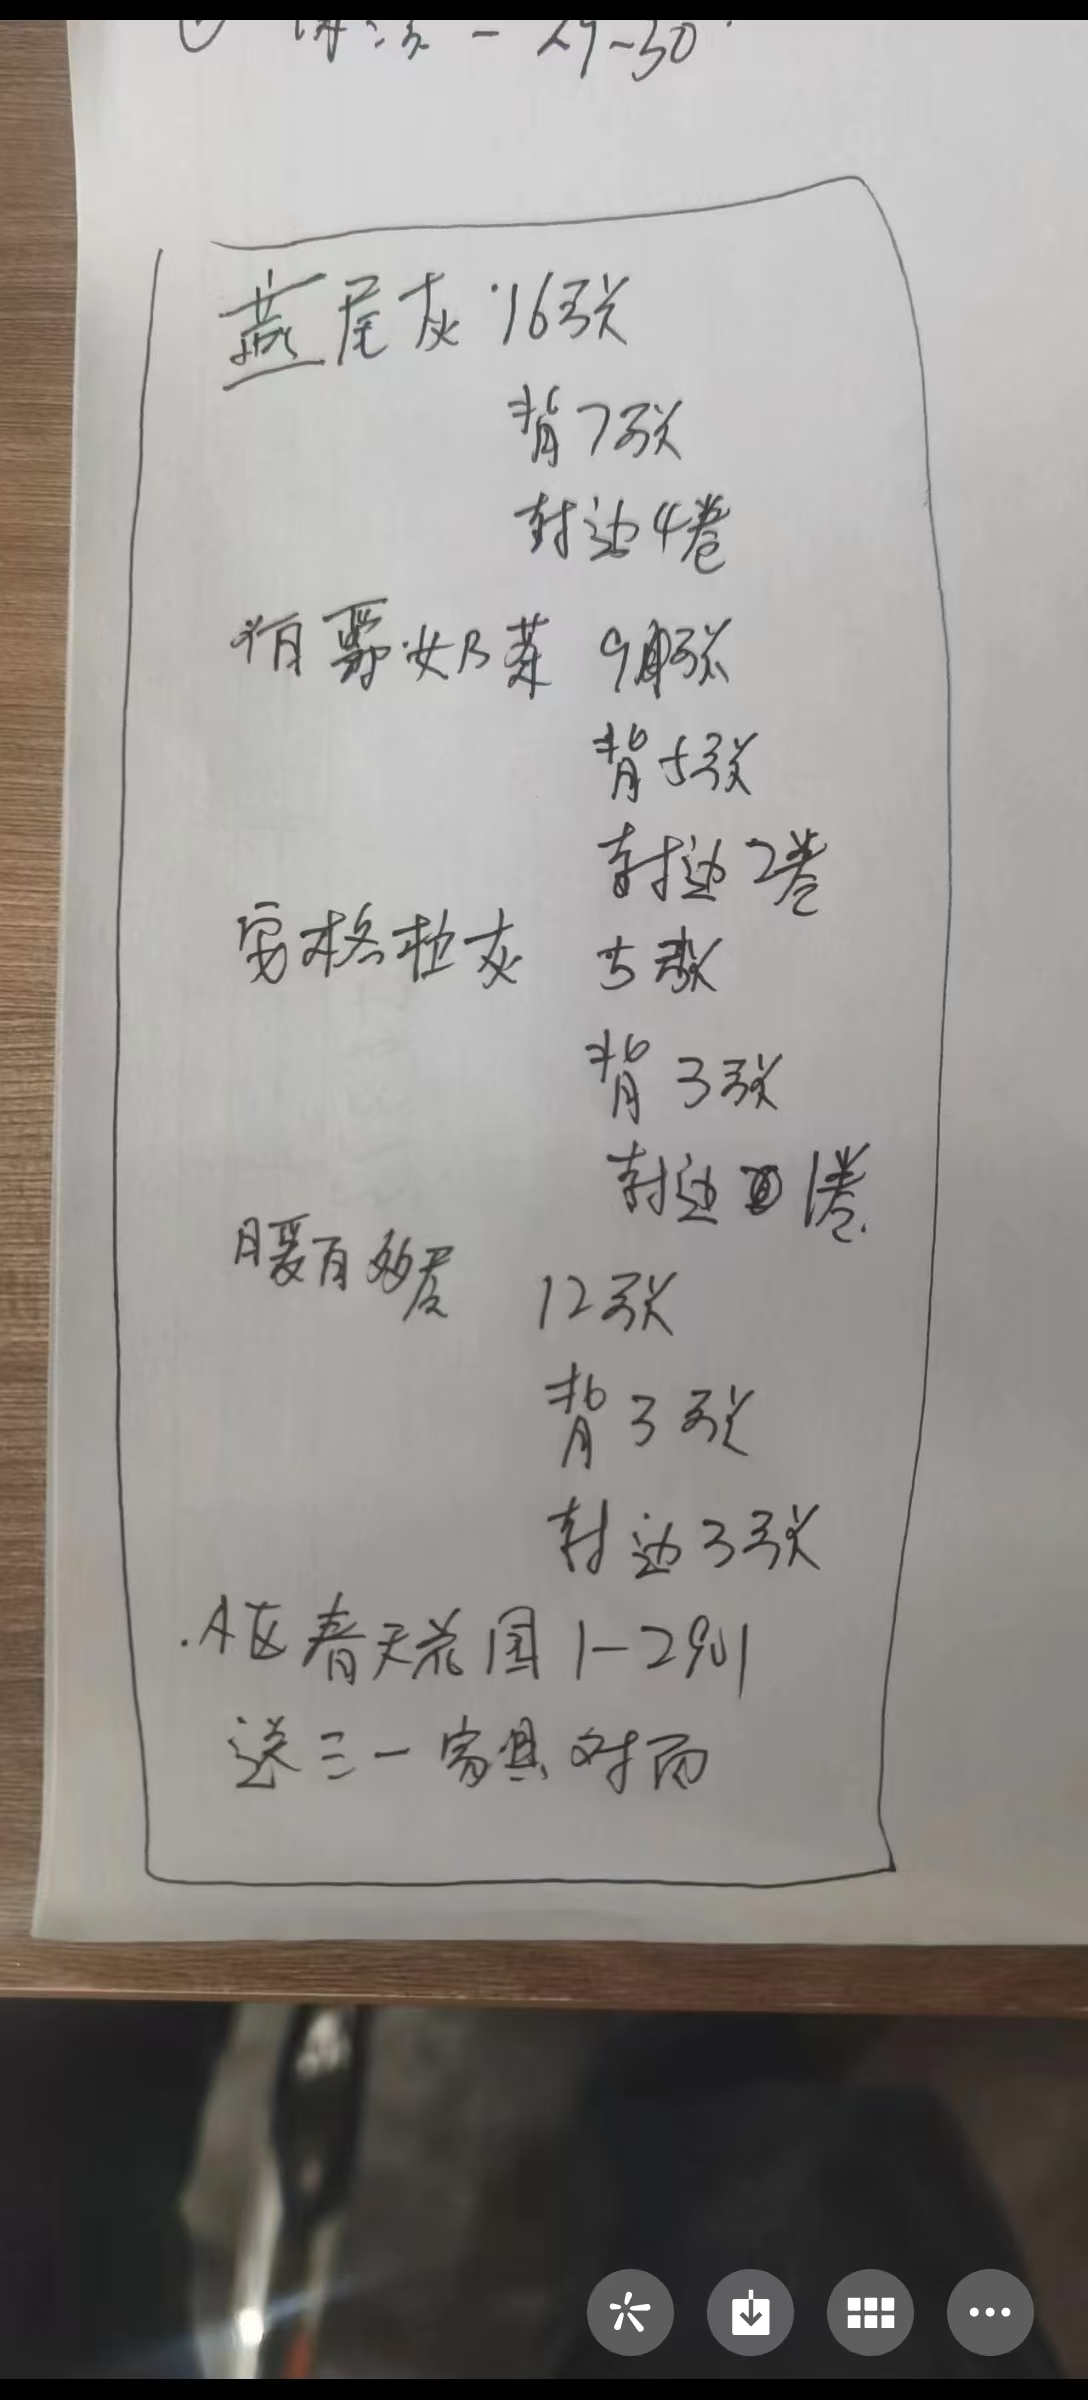 29~30
燕尾灰 16张
背7张
封边4卷
奶茶 9张
背5张
封边2卷
安格拉灰 5张
背3张
封边 1卷
暖百
12张
背3张
封边3张
A区春天花园1-2901
送三一家具对面